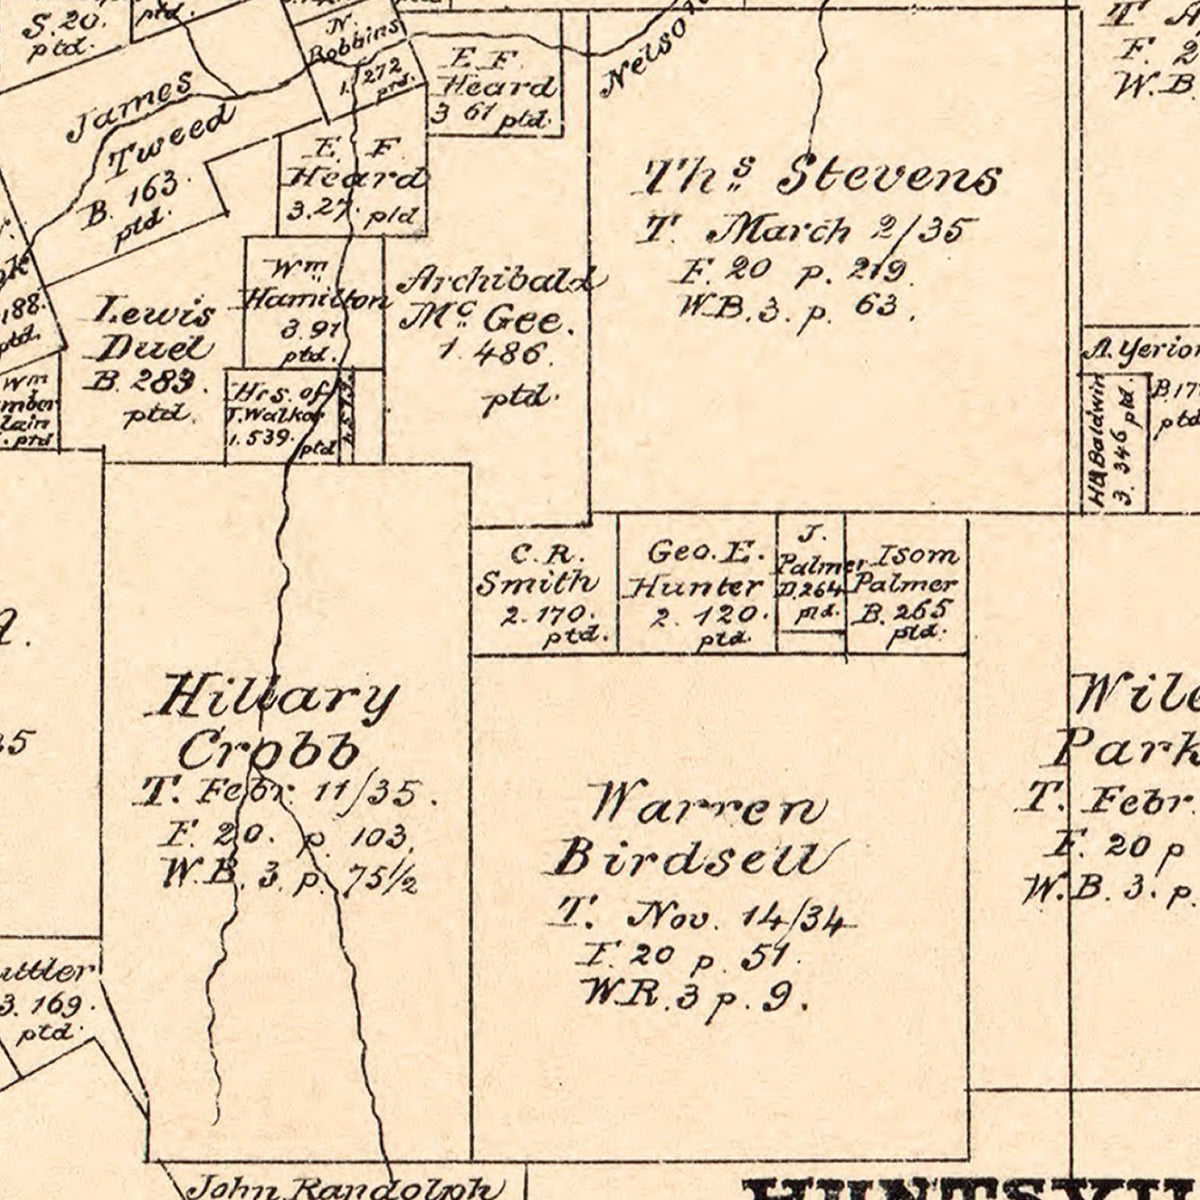 S. 20.
ptd.
ptd.
N.
Robbins
1. 272
prd.
E. F.
Heard
3 61 ptd.
Nelson
James
Tweed
B. 163.
ptd.
E. F.
Heard
3.27. ptd
Ths. Stevens
T. March 2/35
F. 20 p. 219.
W.B. 3. p. 63.
F. 2
W.B.
188.
ptd.
Lewis
Duel
B. 283.
ptd.
Wm
Hamilton
3.91
ptd.
Archibald
Mc. Gee.
1. 486.
ptd.
Wm
mber
lain
. ptd
Hrs. of
T. Walker
1. 539.
ptd
A. Yerion
B. 17
ptd
HA Baldwin
3. 346 ptd.
C. R.
Smith
2. 170.
ptd.
Geo. E.
Hunter
2. 120.
ptd.
J.
Palmer
D. 264
ptd.
Isom
Palmer
B. 265
ptd.
Hillary
Crobb
T. Febr. 11/35.
F. 20. p. 103.
W.B. 3. p. 75½
Warren
Birdsell
T. Nov. 14/34
F. 20 p. 51.
W.R. 3 p. 9.
Wile
Park
T. Febr.
F. 20 p
W.B. 3. p.
uttler
3. 169.
ptd.
John Randolph
HUNTSVIL